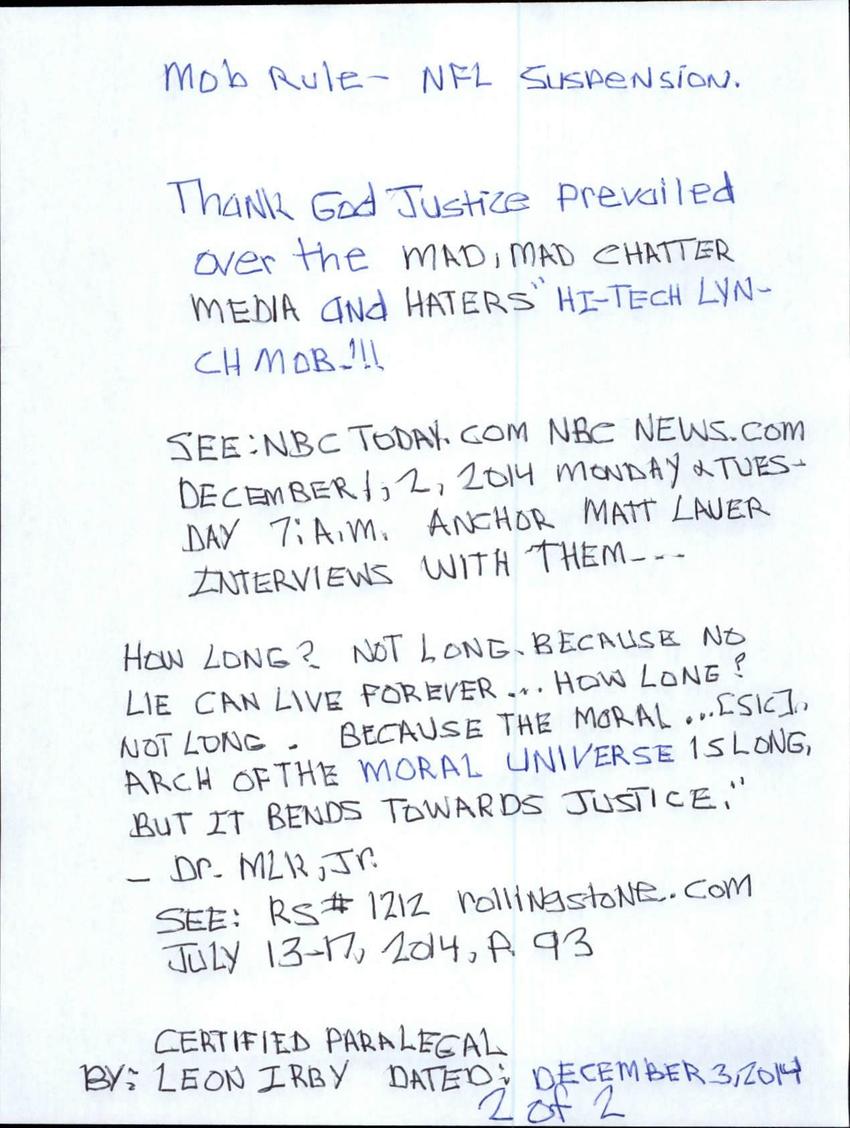 Mob Rule- NFL Suspension.
Thank God Justice prevailed
over the MAD, MAD CHATTER
MEDIA and HATERS" HI-TECH LYN-
CH MOB.!!!
SEE: NBC TODAY.COM NBC NEWS.COM
DECEMBER 1, 2, 2014 MONDAY & TUES-
DAY 7: A.M. ANCHOR MATT LAUER
INTERVIEWS WITH THEM---
HOW LONG? NOT LONG. BECAUSE NO
LIE CAN LIVE FOREVER... HOW LONG?
NOT LONG. BECAUSE THE MORAL ...[SIC],
ARCH OF THE MORAL UNIVERSE IS LONG,
BUT IT BENDS TOWARDS JUSTICE."
- Dr. MLK, Jr.
SEE: RS# 1212 rollingstone.com
JULY 13-17, 2014, A 93
CERTIFIED PARALEGAL
BY: LEON IRBY DATED: DECEMBER 3, 2014
2 of 2